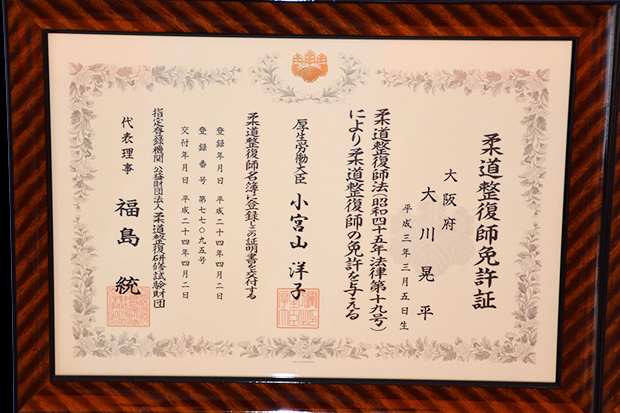 柔道整復師免許証
大阪府
大川晃平
平成三年三月五日生
柔道整復師法(昭和四十五年法律第十九号)
により柔道整復師の免許を与える
厚生労働大臣 小宮山洋子
柔道整復師名簿に登録しこの証明書を交付する
登録年月日 平成二十四年四月二日
登録番号 第七七〇九五号
交付年月日 平成二十四年四月二日
指定登録機関 公益財団法人柔道整復研修試験財団
代表理事 福島統